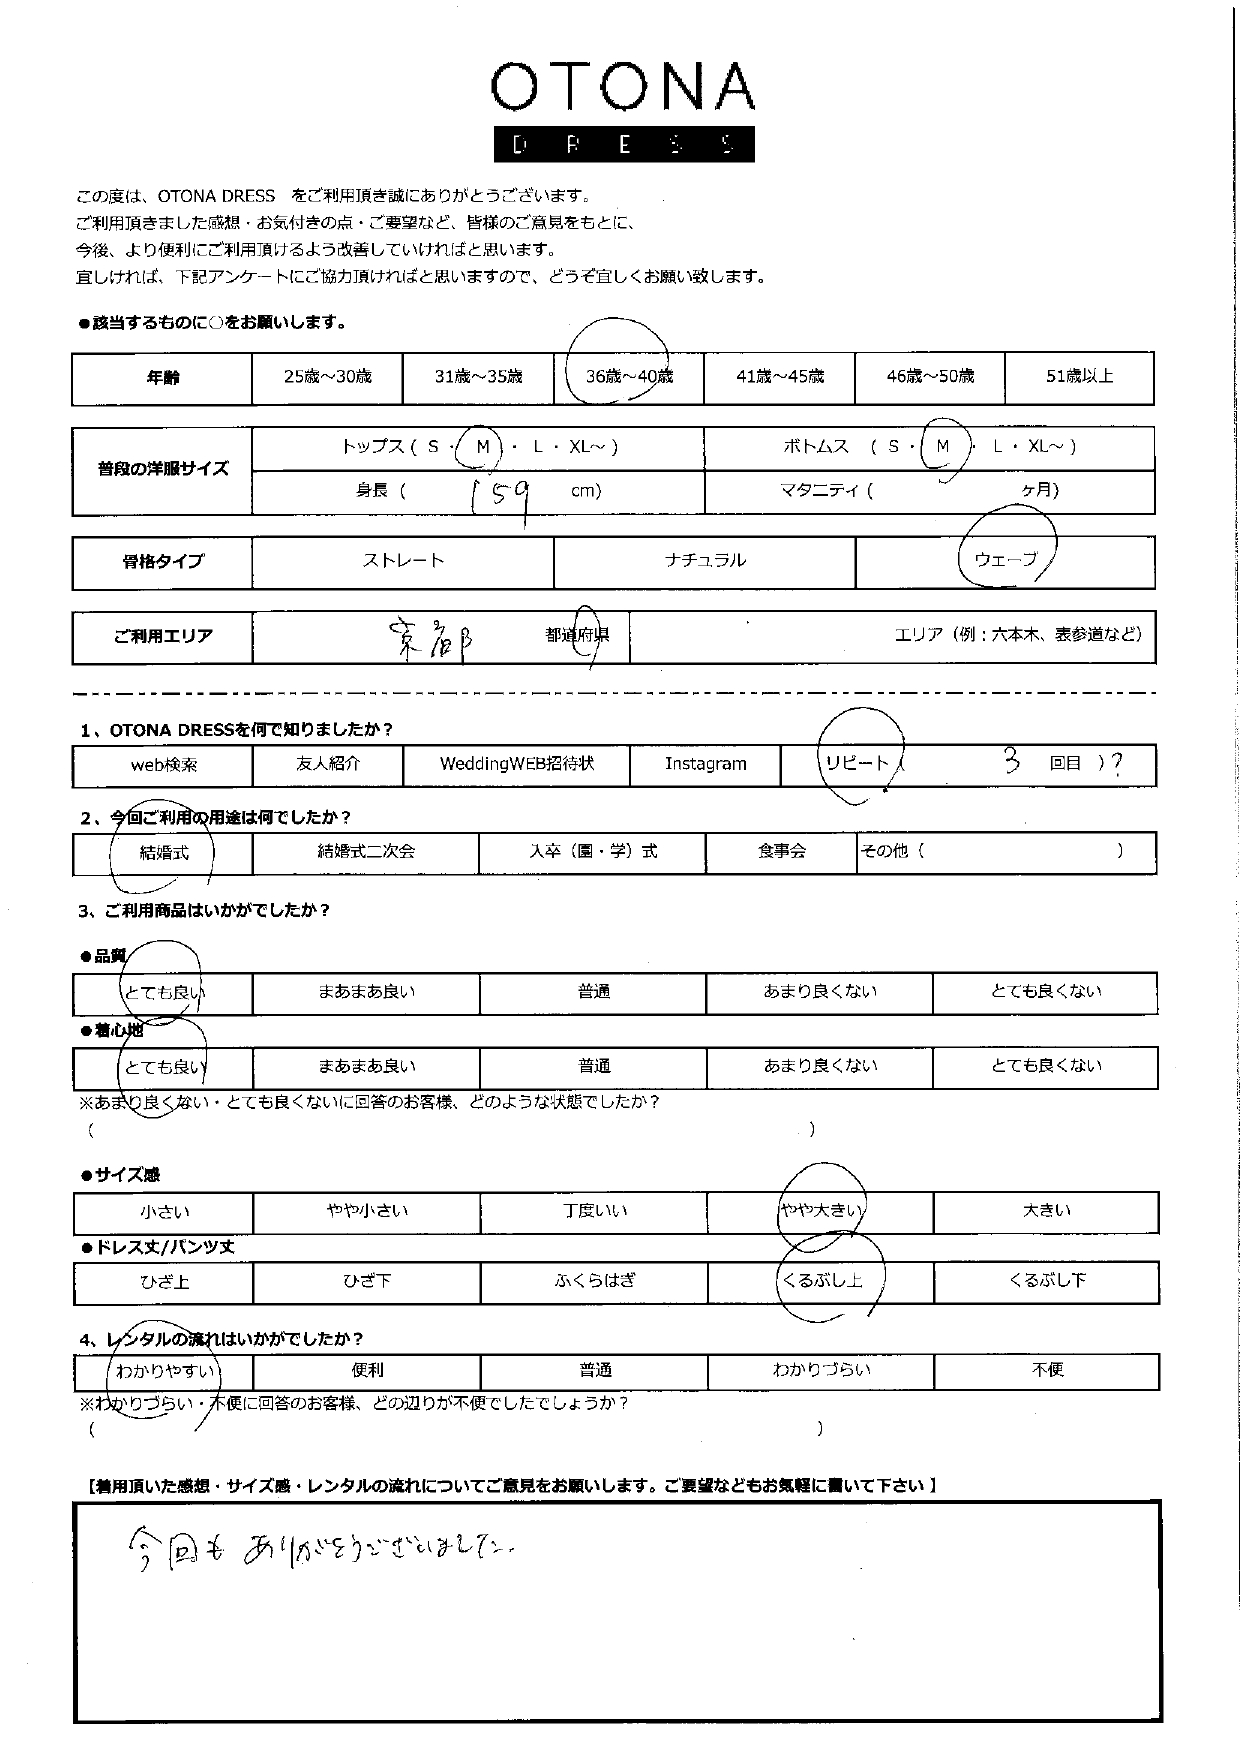 OTONA
DRESS
この度は、OTONA DRESS　をご利用頂き誠にありがとうございます。
ご利用頂きました感想・お気付きの点・ご要望など、皆様のご意見をもとに、
今後、より便利にご利用頂けるよう改善していければと思います。
宜しければ、下記アンケートにご協力頂ければと思いますので、どうぞ宜しくお願い致します。
●該当するものに○をお願いします。
年齢 25歳～30歳 31歳～35歳 36歳～40歳 41歳～45歳 46歳～50歳 51歳以上
普段の洋服サイズ トップス ( S ・ M ・ L ・ XL～ ) ボトムス ( S ・ M ・ L ・ XL～ )
身長 ( 159 cm) マタニティ ( ヶ月)
骨格タイプ ストレート ナチュラル ウェーブ
ご利用エリア 京都 都道府県 エリア（例：六本木、表参道など）
1、OTONA DRESSを何で知りましたか？
web検索 友人紹介 WeddingWEB招待状 Instagram リピート ( 3 回目 ) ?
2、今回ご利用の用途は何でしたか？
結婚式 結婚式二次会 入卒（園・学）式 食事会 その他 ( )
3、ご利用商品はいかがでしたか？
●品質
とても良い まあまあ良い 普通 あまり良くない とても良くない
●着心地
とても良い まあまあ良い 普通 あまり良くない とても良くない
※あまり良くない・とても良くないに回答のお客様、どのような状態でしたか？
( )
●サイズ感
小さい やや小さい 丁度いい やや大きい 大きい
●ドレス丈/パンツ丈
ひざ上 ひざ下 ふくらはぎ くるぶし上 くるぶし下
4、レンタルの流れはいかがでしたか？
わかりやすい 便利 普通 わかりづらい 不便
※わかりづらい・不便に回答のお客様、どの辺りが不便でしたでしょうか？
( )
【着用頂いた感想・サイズ感・レンタルの流れについてご意見をお願いします。ご要望などもお気軽に書いて下さい 】
今回も ありがとうございました。